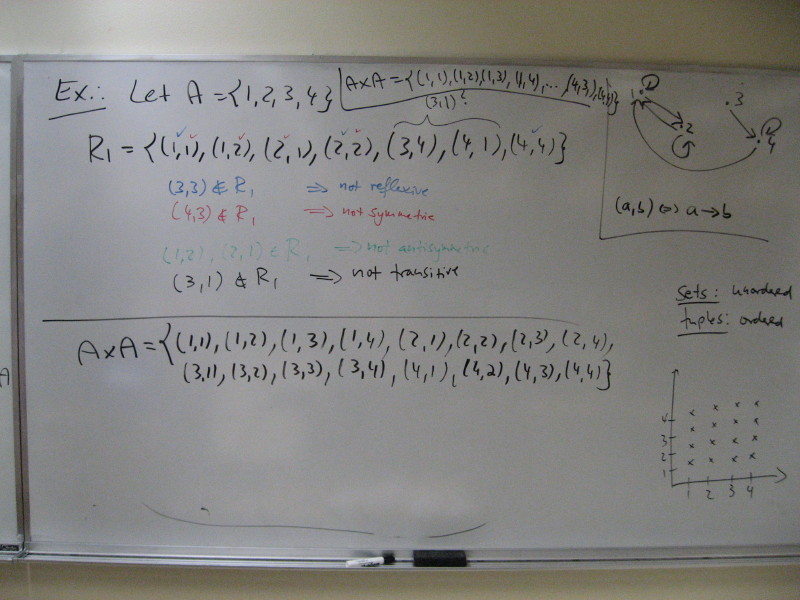 Ex.: Let A = {1,2,3,4}
AxA = {(1,1),(1,2),(1,3),(1,4),...,(4,3),(4,4)}
(3,1)?
R₁ = {(1,1), (1,2), (2,1), (2,2), (3,4), (4,1), (4,4)}
(3,3) ∉ R₁ ⇒ not reflexive
(4,3) ∉ R₁ ⇒ not symmetric
(1,2), (2,1) ∈ R₁ ⇒ not antisymmetric
(3,1) ∉ R₁ ⇒ not transitive
1 2 3 4
(a,b) ⇔ a → b
sets: unordered
tuples: ordered
AxA = {(1,1), (1,2), (1,3), (1,4), (2,1), (2,2), (2,3), (2,4),
(3,1), (3,2), (3,3), (3,4), (4,1), (4,2), (4,3), (4,4)}
4
3
2
1
1 2 3 4
A